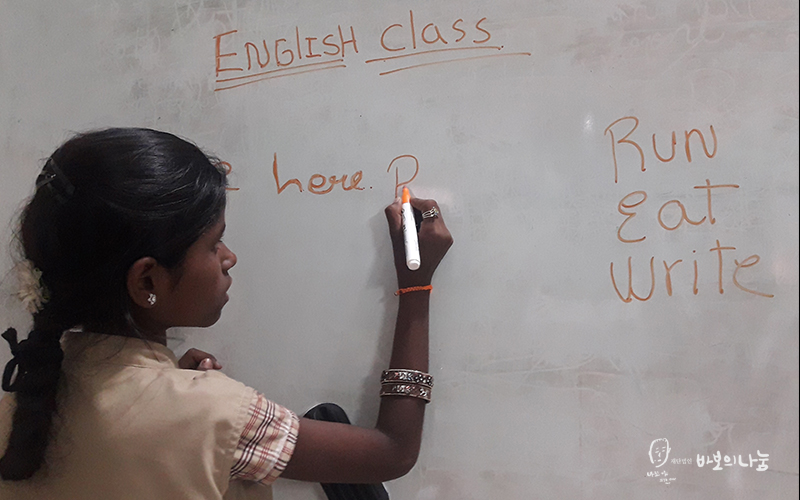 ENGLISH class
here. P
Run
Eat
Write
재단법인 바보의나눔